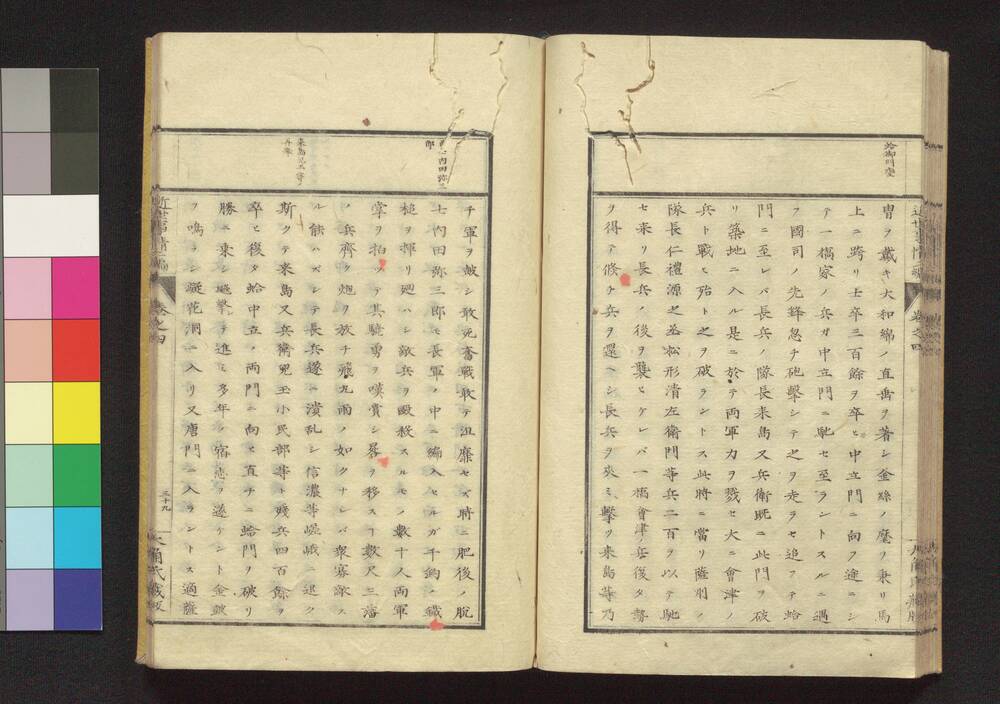 蛤御門変
冑ヲ戴キ大和錦ノ直垂ヲ著シ金絲ノ麾ヲ秉リ馬
上ニ跨リ士卒三百餘ヲ卒ヒ中立門ニ向フ途ニシ
テ一橋家ノ兵ガ中立門ニ馳セ至ラントスルニ遇
フ國司ノ先鋒忽チ砲撃シテ之ヲ走ラセ追フテ蛤
門ニ至レバ長兵ノ隊長来島又兵衛既ニ此門ヲ破
リ築地ニ入ル是ニ於テ両軍力ヲ戮セ大ニ會津ノ
兵ト戰ヒ殆ト之ヲ破ラントス此時ニ當リ薩州ノ
隊長仁禮源之丞松形清左衛門等兵二百ヲ以テ馳
セ来リ長兵ノ後ヲ襲ヒケレバ一橋會津ノ兵復タ勢
ヲ得テ條チ兵ヲ還ヘシ長兵ヲ夾ミ撃リ来島等乃
巻之四
内田弥三
郎
来島児玉等ノ
再挙
チ軍ヲ皷シ敢死奮戰敢テ沮靡セズ時ニ肥後ノ脱
士内田弥三郎モ長軍ノ中ニ編入セルガ千鈞ノ鐵
槌ヲ揮リ廻ハシ敵兵ヲ毆殺スルモノ數十人両軍
掌ヲ拍ッテ其驍勇ヲ嘆賞シ晷ヲ移ス丁數尺三藩
ノ兵齊ク炮ヲ放チ飛丸雨ノ如クナレバ衆寡敵ス
ル能ハズシテ長兵遂ニ潰乱シ信濃等嵯峨ニ退ク
斯クテ来島又兵衛児玉小民部等ト殘兵四百餘ヲ
卒ヒ復タ蛤中立ノ両門ニ向ヒ直チニ蛤門ヲ破リ
勝ニ乗シ進撃テ進ミ多年ノ宿志ヲ遂ケント金鼓
ヲ鳴ラシ凝花洞ニ入リ又唐門ニ入ラントス適薩
巻之四
三十九